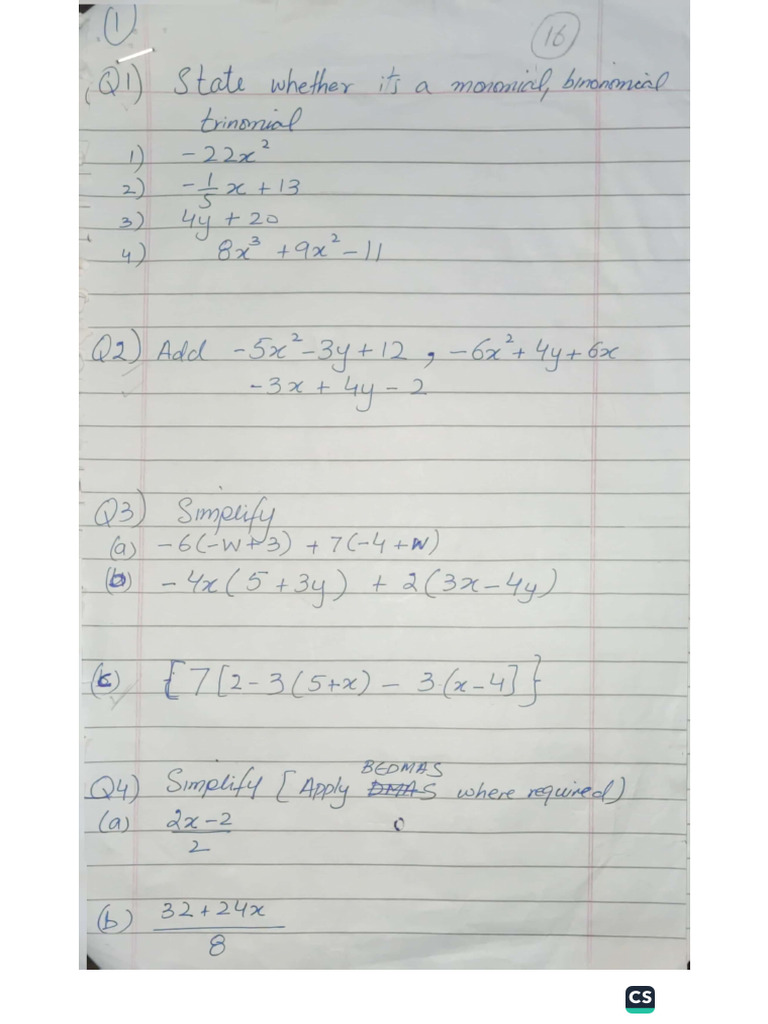 (1)
16
Q1) State whether it's a monomial, binomial
trinomial
1) -22x²
2) -1/5 x + 13
3) 4y + 20
4) 8x³ + 9x² - 11
Q2) Add -5x² - 3y + 12 , -6x² + 4y + 6x
-3x + 4y - 2
Q3) Simplify
(a) -6(-w+3) + 7(-4+w)
(b) -4x(5+3y) + 2(3x-4y)
(c) {7[2-3(5+x) - 3(x-4]}
BEDMAS
Q4) Simplify [Apply DMAS where required)
(a) 2x-2
2
(b) 32+24x
8
CS